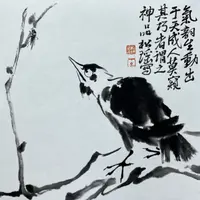 氣韻生動出
于天成人莫窺
其巧者謂之
神品松溪寫